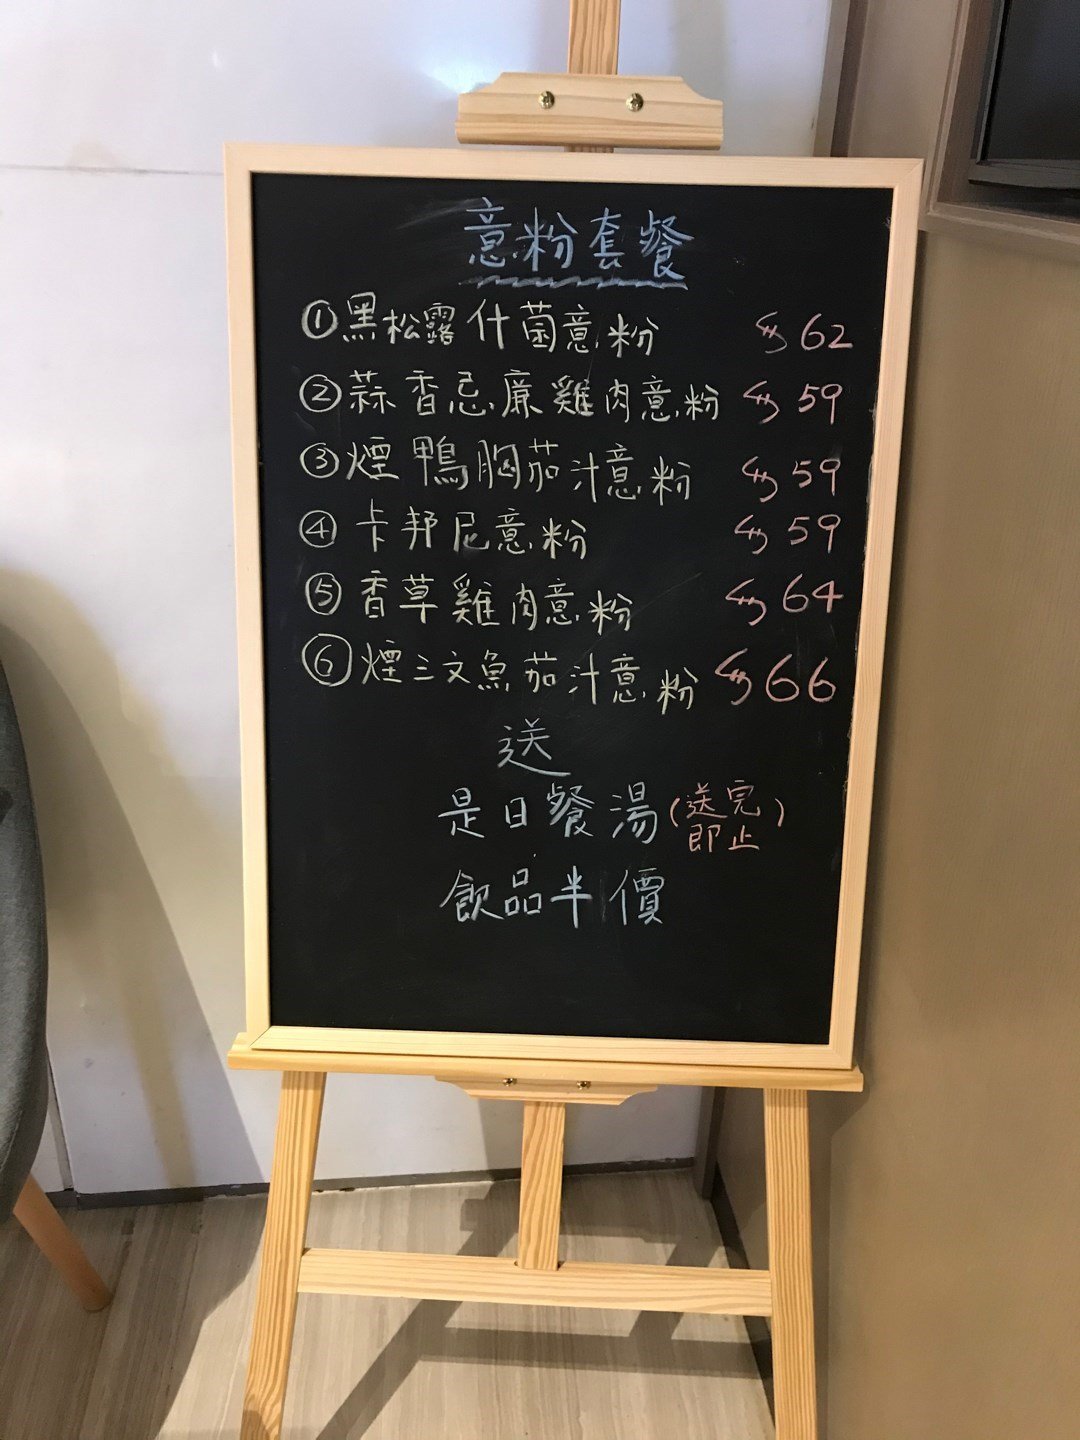 意粉套餐
①黑松露什菌意粉 $62
②蒜香忌廉雞肉意粉 $59
③煙鴨胸茄汁意粉 $59
④卡邦尼意粉 $59
⑤香草雞肉意粉 $64
⑥煙三文魚茄汁意粉 $66
送
是日餐湯(送完即止)
飲品半價